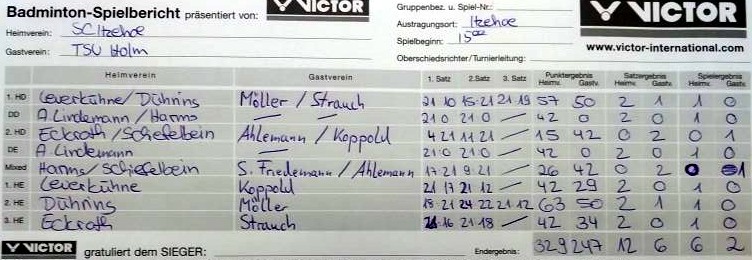 VICTOR
VICTOR
Badminton-Spielbericht präsentiert von:
Gruppenbez. u. Spiel-Nr.:
Heimverein: SC Itzehoe
Austragungsort: Itzehoe
Gastverein: TSV Holm
Spielbeginn: 15⁰⁰
www.victor-international.com
Oberschiedsrichter/Turnierleitung:
Heimverein Gastverein 1. Satz 2. Satz 3. Satz Punktergebnis Heimv. Gastv. Satzergebnis Heimv. Gastv. Spielergebnis Heimv. Gastv.
1. HD Leverkühne/Dührins Möller / Strauch 21 10 15-21 21 19 57 50 2 1 1 0
DD A Lindemann/Harms — — 21 0 21 0 — 42 0 2 0 1 0
2. HD Eckroth/Schiefelbein Ahlemann / Koppold 4 21 11 21 — 15 42 0 2 0 1
DE A. Lindemann — 21 0 21 0 — 42 0 2 0 1 0
Mixed Harms/Schiefelbein S. Friedemann / Ahlemann 17-21 9-21 — 26 42 0 2 0 1
1. HE Leverkühne Koppold 21 17 21 12 — 42 29 2 0 1 0
2. HE Dührins Möller 18-21 24 22 21 12 63 50 2 1 1 0
3. HE Eckroth Strauch 21-16 21-18 — 42 34 2 0 1 0
VICTOR gratuliert dem SIEGER: Endergebnis: 329 247 12 6 6 2